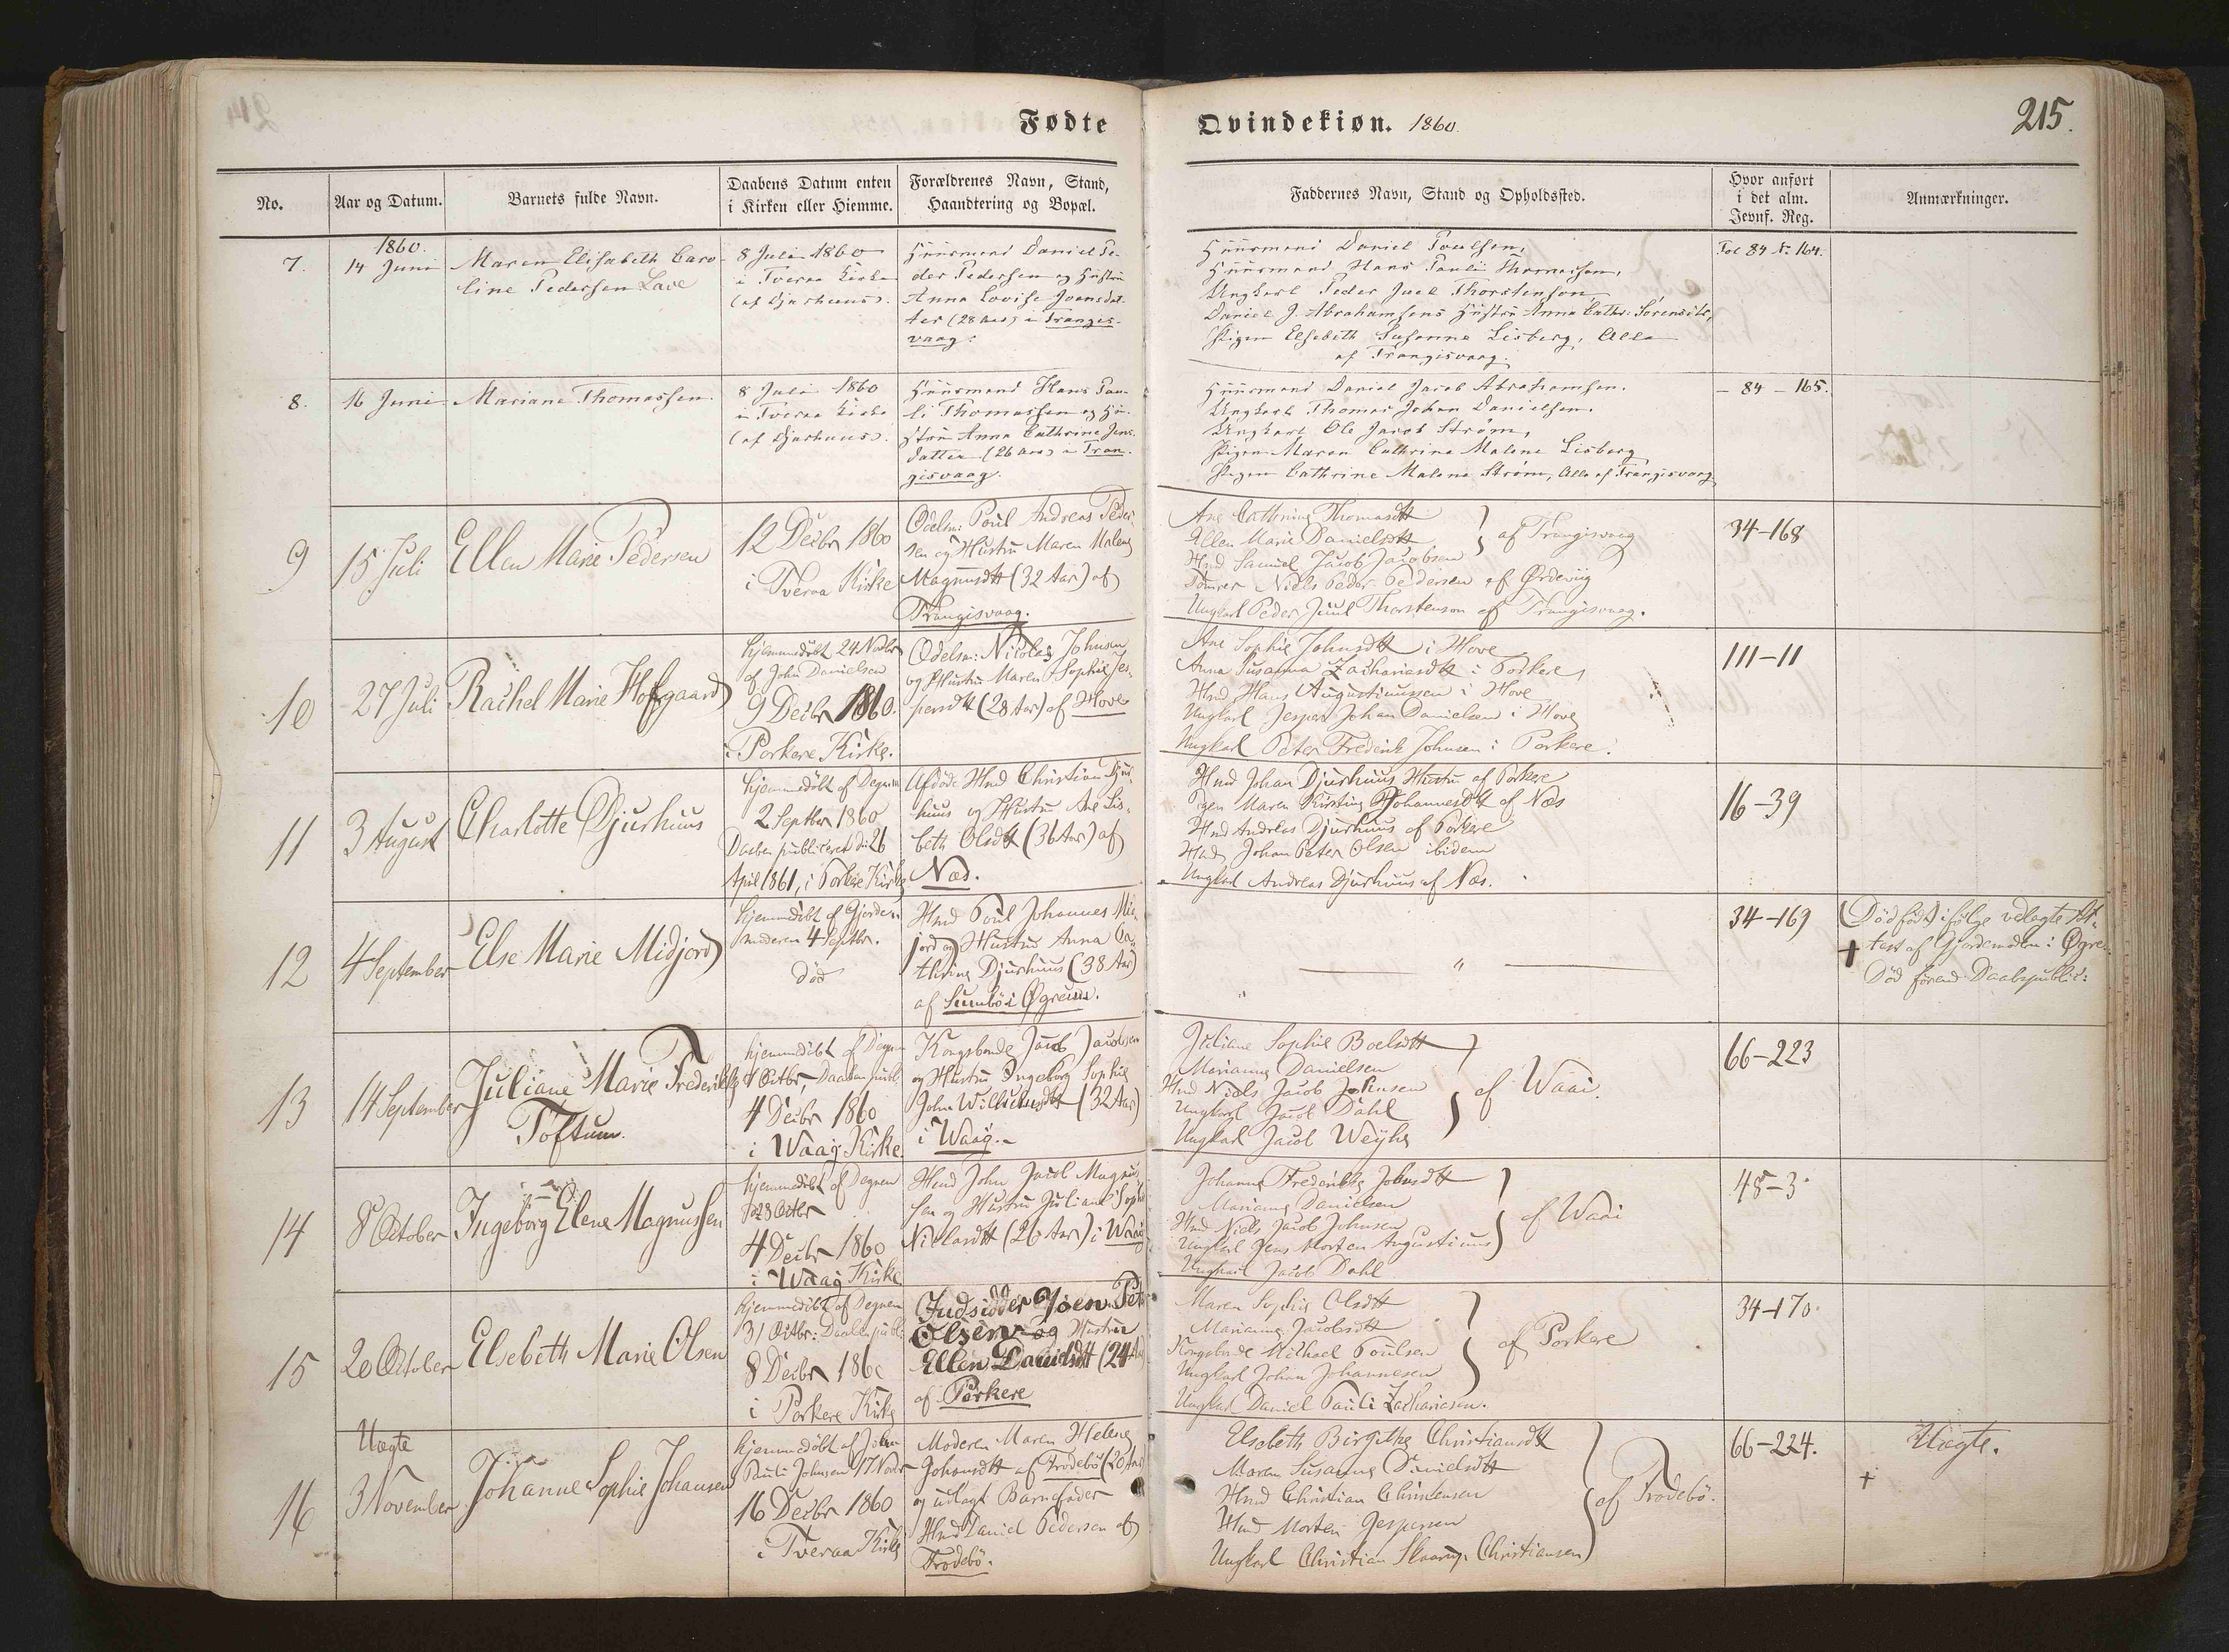 Fødte
Qvindekiøn. 1860.
215.
No.
Aar og Datum.
Barnets fulde Navn.
Daabens Datum enten
i Kirken eller Hiemme.
Forældrenes Navn, Stand,
Haandtering og Bopæl.
Faddernes Navn, Stand og Opholdssted.
Hvor anført
i det alm.
Jevnf. Reg.
Anmærkninger.
7.
1860.
14 Juni
Maren Elisabeth Caro-
line Pedersen Lave
8 Juli 1860
i Tveraa Kirke
(af Djurhuus).
Huusmand Daniel Pe-
der Pedersen og Hustru
Anna Lovise Joensdat-
ter (28 Aar) i Trangis-
vaag.
Huusmand Daniel Poulsen,
Huusmand Hans Pauli Thomassen,
Ungkarl Peder Juel Thorstenson
Daniel J. Abrahamsens Hustru Anna Cathr: Sørensdtr,
Pigen Elsebeth Susanne Lisberg, Alle
af Trangisvaag.
Fol 84 Nr 164.
8.
16 Juni
Mariane Thomassen.
8 Juli 1860
i Tveraa Kirke
(af Djurhuus).
Huusmand Hans Pau-
li Thomassen og Hu-
stru Anna Cathrine Jens-
datter (26 Aar) i Tran-
gisvaag.
Huusmand Daniel Jacob Abrahamsen.
Ungkarl Thomas Johan Danielsen.
Ungkarl Ole Jacob Strøm,
Pigen Maren Cathrine Malene Lisberg
Pigen Cathrine Malene Strøm, Alle af Trangisvaag
- 84 - 165.
9
15 Juli
Ellen Marie Pedersen
12 Decbr 1860
i Tveraa Kirke
Odelsm: Poul Andreas Peder
sen og Hustru Maren Malene
Magnusdtt (32 Aar) af
Trangisvaag.
Ane Cathrine Thomasdtt
Ellen Marie Danielsdtt
Hmd Samuel Jacob Jacobsen
af Trangisvaag
Niels Peder Pedersen af Ørdevig
Ungkarl Peder Juul Thorstenson af Trangisvaag.
34-168
10
27 Juli
Rachel Marie Hofgaard
hjemmedøbt 24 Novbr
af John Danielsen
9 Decbr 1860.
i Porkere Kirke.
Odelsm: Nicolai Johnsen
og Hustru Maren Sophie Jes-
persdtt (28 Aar) af Hove
Ane Sophie Johnsdtt i Hove
Anna Susanna Zachariasdtt i Porkere
Hmd Hans Augustinussen i Hove
Ungkarl Jesper Johan Danielsen i Hove
Ungkarl Peter Frederik Johnsen i Porkere.
111-11
11
3 August
Charlotte Djurhuus
hjemmedøbt af Degnen
2 Septbr 1860
Daaben publiceret d: 26
April 1861, i Porkere Kirke
Afdøde Hmd Christian Djur-
huus og Hustru Ane Lis-
beth Olsdtt (36 Aar) af
Næs.
Hmd Johan Djurhuus Hustru af Porkere
Pigen Maren Kirstine Johannesdtt af Næs
Hmd Andreas Djurhuus af Porkere
Hmd Johan Peter Olsen ibidem
Ungkarl Andreas Djurhuus af Næs.
16-39
12
4 September
Else Marie Midjord
hjemmedøbt af Gjorde-
moderen 4 Septbr.
død
Hmd Poul Johannes Mid-
jord og Hustru Anna Ca-
thrine Djurhuus (38 Aar)
af Sumbø i Øgrum.
"
34-169
(Dødfødt) ifølge vedlagte At-
+ test af Gjordemoderen i Øgre.
Død førend Daabspublic:
13
14 September
Juliane Marie Frederikke
Toftum.
hjemmedøbt af Degnen
1 Octbr, Daaben publ:
4 Decbr 1860
i Waag Kirke
Kongsbonde Jacob Jacobsen
og Hustru Ingeborg Sophie
John Willielmsdtt (32 Aar)
i Waag.
Juliane Sophie Boelsdtt
Marianne Danielsen
Hmd Niels Jacob Johnsen
Ungkarl Jacob Dahl
Ungkarl Jacob Weyhe
af Waai.
66-223
14
8 October
Ingeborg Elene Magnussen
hjemmedøbt af Degnen
28 Octbr
4 Decbr 1860
i Waag Kirke
Hmd John Jacob Magnus
sen og Hustru Juliane Sophie
Nielsdtt (26 Aar) i Waag
Johanne Frederikke Johnsdtt
Marianne Danielsen
Hmd Niels Jacob Johnsen
Ungkarl Jens Morten Augustinus
Ungkarl Jacob Dahl
af Waai
45-3.
15
20 October
Elsebeth Marie Olsen
hjemmedøbt af Degnen
31 Octbr: Daaben publ:
8 Decbr 1860
i Porkere Kirke
Indsidder Joen Pet
Olsen og Hustru
Ellen Davidsdtt (24 Aar
af Porkere
Maren Sophie Olsdtt
Marianne Jacobsdtt
Kongsbonde Michael Poulsen
Ungkarl Johan Johannesen
Ungkarl Daniel Pauli Zachariasen.
af Porkere
34-170.
16
Uægte
3 November
Johanne Sophie Johansen
hjemmedøbt af John
Pauli Johnsen 17 Novbr
16 Decbr 1860
i Tveraa Kirke
Moderen Maren Helene
Johansdtt af Frodebø (20 Aar)
og udlagt Barnefader
Hmd Daniel Pedersen af
Frodebø.
Elsebeth Birgithe Christiansdtt
Maren Susanne Danielsdtt
Hmd Christian Christensen
Hmd Morten Jespersen
Ungkarl Christian Skaarup Christiansen
af Frodebø.
66-224.
Uægte.
+